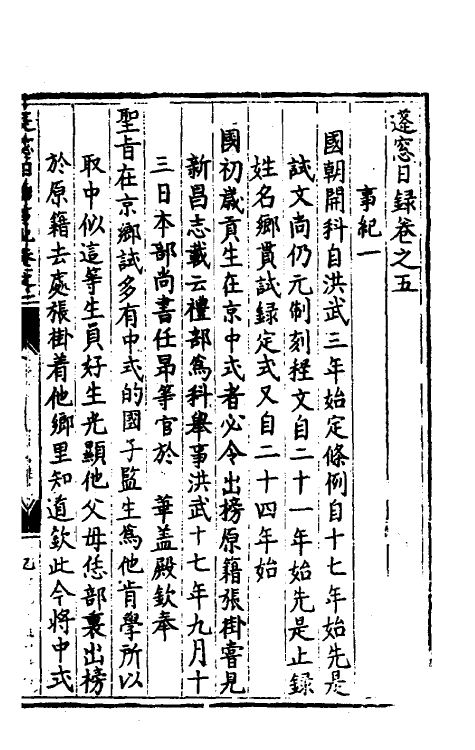 蓬窓日録卷之五
事紀一
國朝開科自洪武三年始定條例自十七年始先是
試文尚仍元制刻程文自二十一年始先是止録
姓名鄉貫試録定式又自二十四年始
國初歲貢生在京中式者必令出榜原籍張掛嘗見
新昌志載云禮部爲科舉事洪武十七年九月十
三日本部尚書任昂等官於　華盖殿欽奉
聖旨在京鄉試多有中式的國子監生爲他肯學所以
取中似這等生員好生光顯他父母恁部裏出榜
於原籍去處張掛着他鄉里知道欽此今將中式